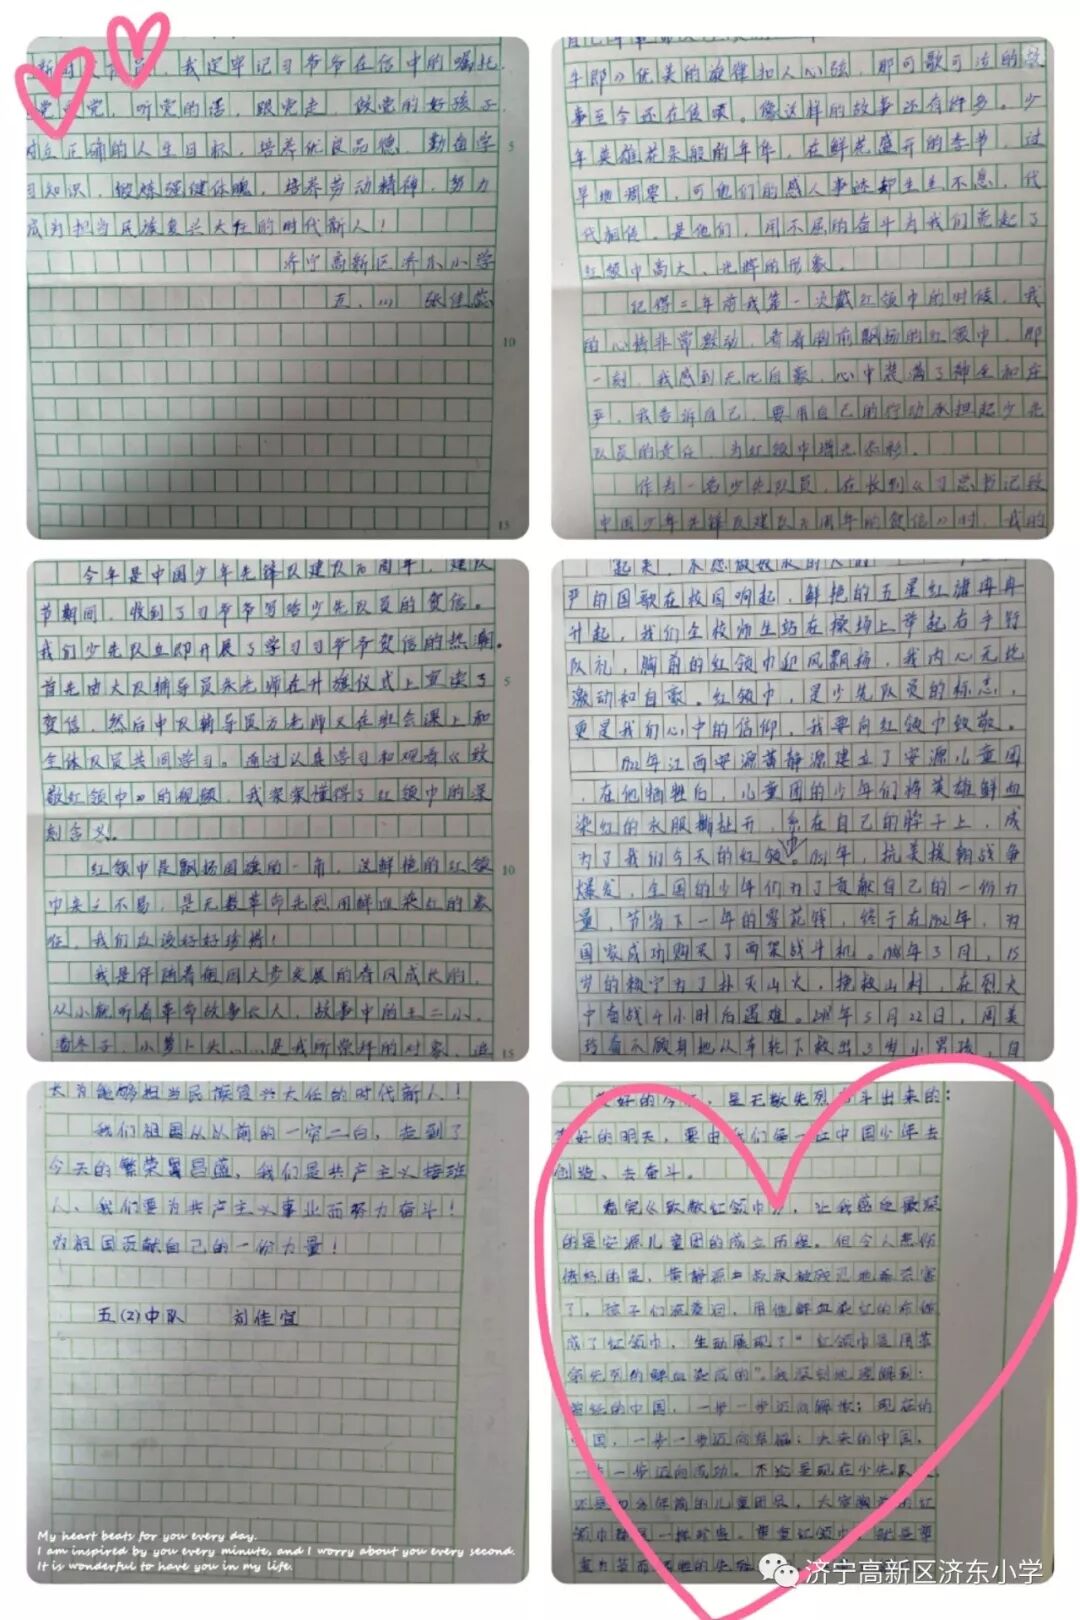 新时代队员，我定牢记习爷爷在信中的嘱托，
党爱党，听党的话，跟党走，做党的好孩子，
树立正确的人生目标，培养优良品德，勤奋学
习知识，锻炼强健体魄，培养劳动精神，努力
成为担当民族复兴大任的时代新人！
济宁高新区济东小学
五、(1) 张佳蕊
牛郎》优美的旋律扣人心弦，那可歌可泣的故
事至今还在传颂。像这样的故事还有许多。少
年英雄花朵般的年华，在鲜花盛开的季节，过
早地凋零，可他们的感人事迹却生生不息，代
代相传。是他们，用不屈的奋斗为我们竞起了
红领巾高大、光辉的形象。
记得三年前我第一次戴红领巾的时候，我
的心情非常激动，看着胸前飘扬的红领巾，那
一刻，我感到无比自豪，心中装满了神圣和庄
严，我告诉自己，要用自己的行动承担起少先
队员的责任，为红领巾增光添彩。
作为一名少先队员，在长到《习总书记致
中国少年先锋队建队七十周年的贺信》时，我的
今年是中国少年先锋队建队70周年，建队
节期间，收到了习爷爷写给少先队员的贺信。
我们少先队立即开展了学习习爷爷贺信的热潮。
首先由大队辅导员朱老师在升旗仪式上宣读了
贺信，然后中队辅导员方老师又在班会课上和
全体队员共同学习。通过认真学习和观看《致
敬红领巾》的视频，我渐渐懂得了红领巾的深
刻含义。
红领巾是飘扬国旗的一角，这鲜艳的红领
巾来之不易，是无数革命先烈用鲜血染红的象
征，我们应该好好珍惜！
我是伴随着祖国大步发展的春风成长的，
从小就听着革命故事《人，故事中的王二小、
潘冬子、小萝卜头……是我所崇拜的对象，是
严的国歌在校园响起，鲜艳的五星红旗冉冉
升起，我们全校师生站在操场上举起右手行
队礼，胸前的红领巾迎风飘扬，我内心无比
激动和自豪。红领巾，是少先队员的标志，
更是我们心中的信仰，我要向红领巾致敬。
1922年江西安源黄静源建立了安源儿童团
，在他牺牲后，儿童团的少年们将英雄鲜血
染红的衣服撕扯开，系在自己的脖子上，成
为了我们今天的红领巾。1951年，抗美援朝战争
爆发，全国的少年们为了贡献自己的一份力
量，节省下一年的零花钱，终于在1952年，为
国家成功购买了两架战斗机。1988年3月，15
岁的赖宁为了扑灭山火，挽救山村，在烈火
中奋战4小时后遇难。2018年5月22日，周美
玲奋不顾身地从车轮下救出3岁小男孩，自
大为能够担当民族复兴大任的时代新人！
我们祖国从以前的一穷二白，走到了
今天的繁荣昌盛，我们是共产主义接班
人，我们要为共产主义事业而努力奋斗！
为祖国贡献自己的一份力量！
五(2)中队 刘佳宜
美好的今天，是无数先烈奋斗出来的；
美好的明天，要由我们每一位中国少年去
创造、去奋斗。
看完《致敬红领巾》，让我感受最深
的是安源儿童团的成立历程。但令人悲伤
愤怒的是，黄静源叔叔被残忍地杀害
了，孩子们深爱着，用他鲜血染红的布做
成了红领巾，生动展现了“红领巾是用革
命先烈的鲜血染成的”。我深刻地理解到：
曾经的中国，一步一步迈向解放；现在的
中国，一步一步迈向幸福；未来的中国，
一步一步迈向成功。不论是现在少先队员，
还是四分年前的儿童团员，大家胸前的红
领巾都是一样珍贵。尊重红领巾，就是尊
重为革命牺牲的先烈
My heart beats for you every day.
I am inspired by you every minute, and I worry about you every second.
It is wonderful to have you in my life.
济宁高新区济东小学